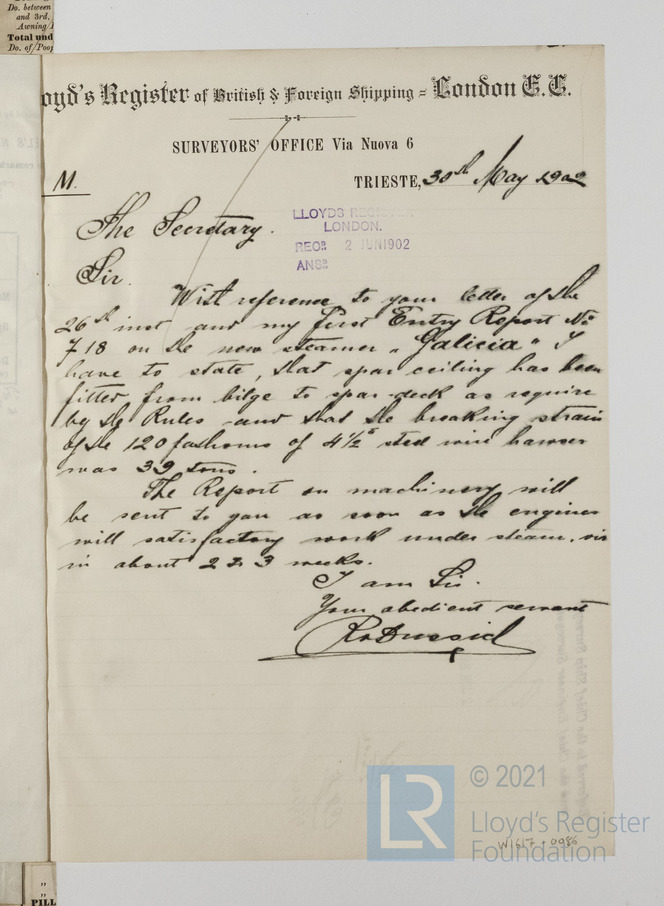 Do. between
and 3rd,
Awning/
Total und
Do. of Poop
oyd's Register of British & Foreign Shipping = London E.C.
SURVEYORS' OFFICE Via Nuova 6
M.
TRIESTE, 30th May 1902
The Secretary.
LLOYDS REGISTER
LONDON.
REC. 2 JUN 1902
ANS.
Sir.
With reference to your letter of the
26th inst and my first Entry Report No
718 on the new steamer "Galicia" I
have to state, that spar ceiling has been
fitted from bilge to spar-deck as require
by the Rules and that the breaking strain
of the 120 fathoms of 4½" steel wire hawser
was 39 tons.
The Report on machinery will
be sent to you as soon as the engines
will satisfactory work under steam. viz
in about 2 or 3 weeks.
I am Sir.
Your obedient servant
© 2021
LR
Lloyd's Register
Foundation
W1617-0086
"
"
PILL